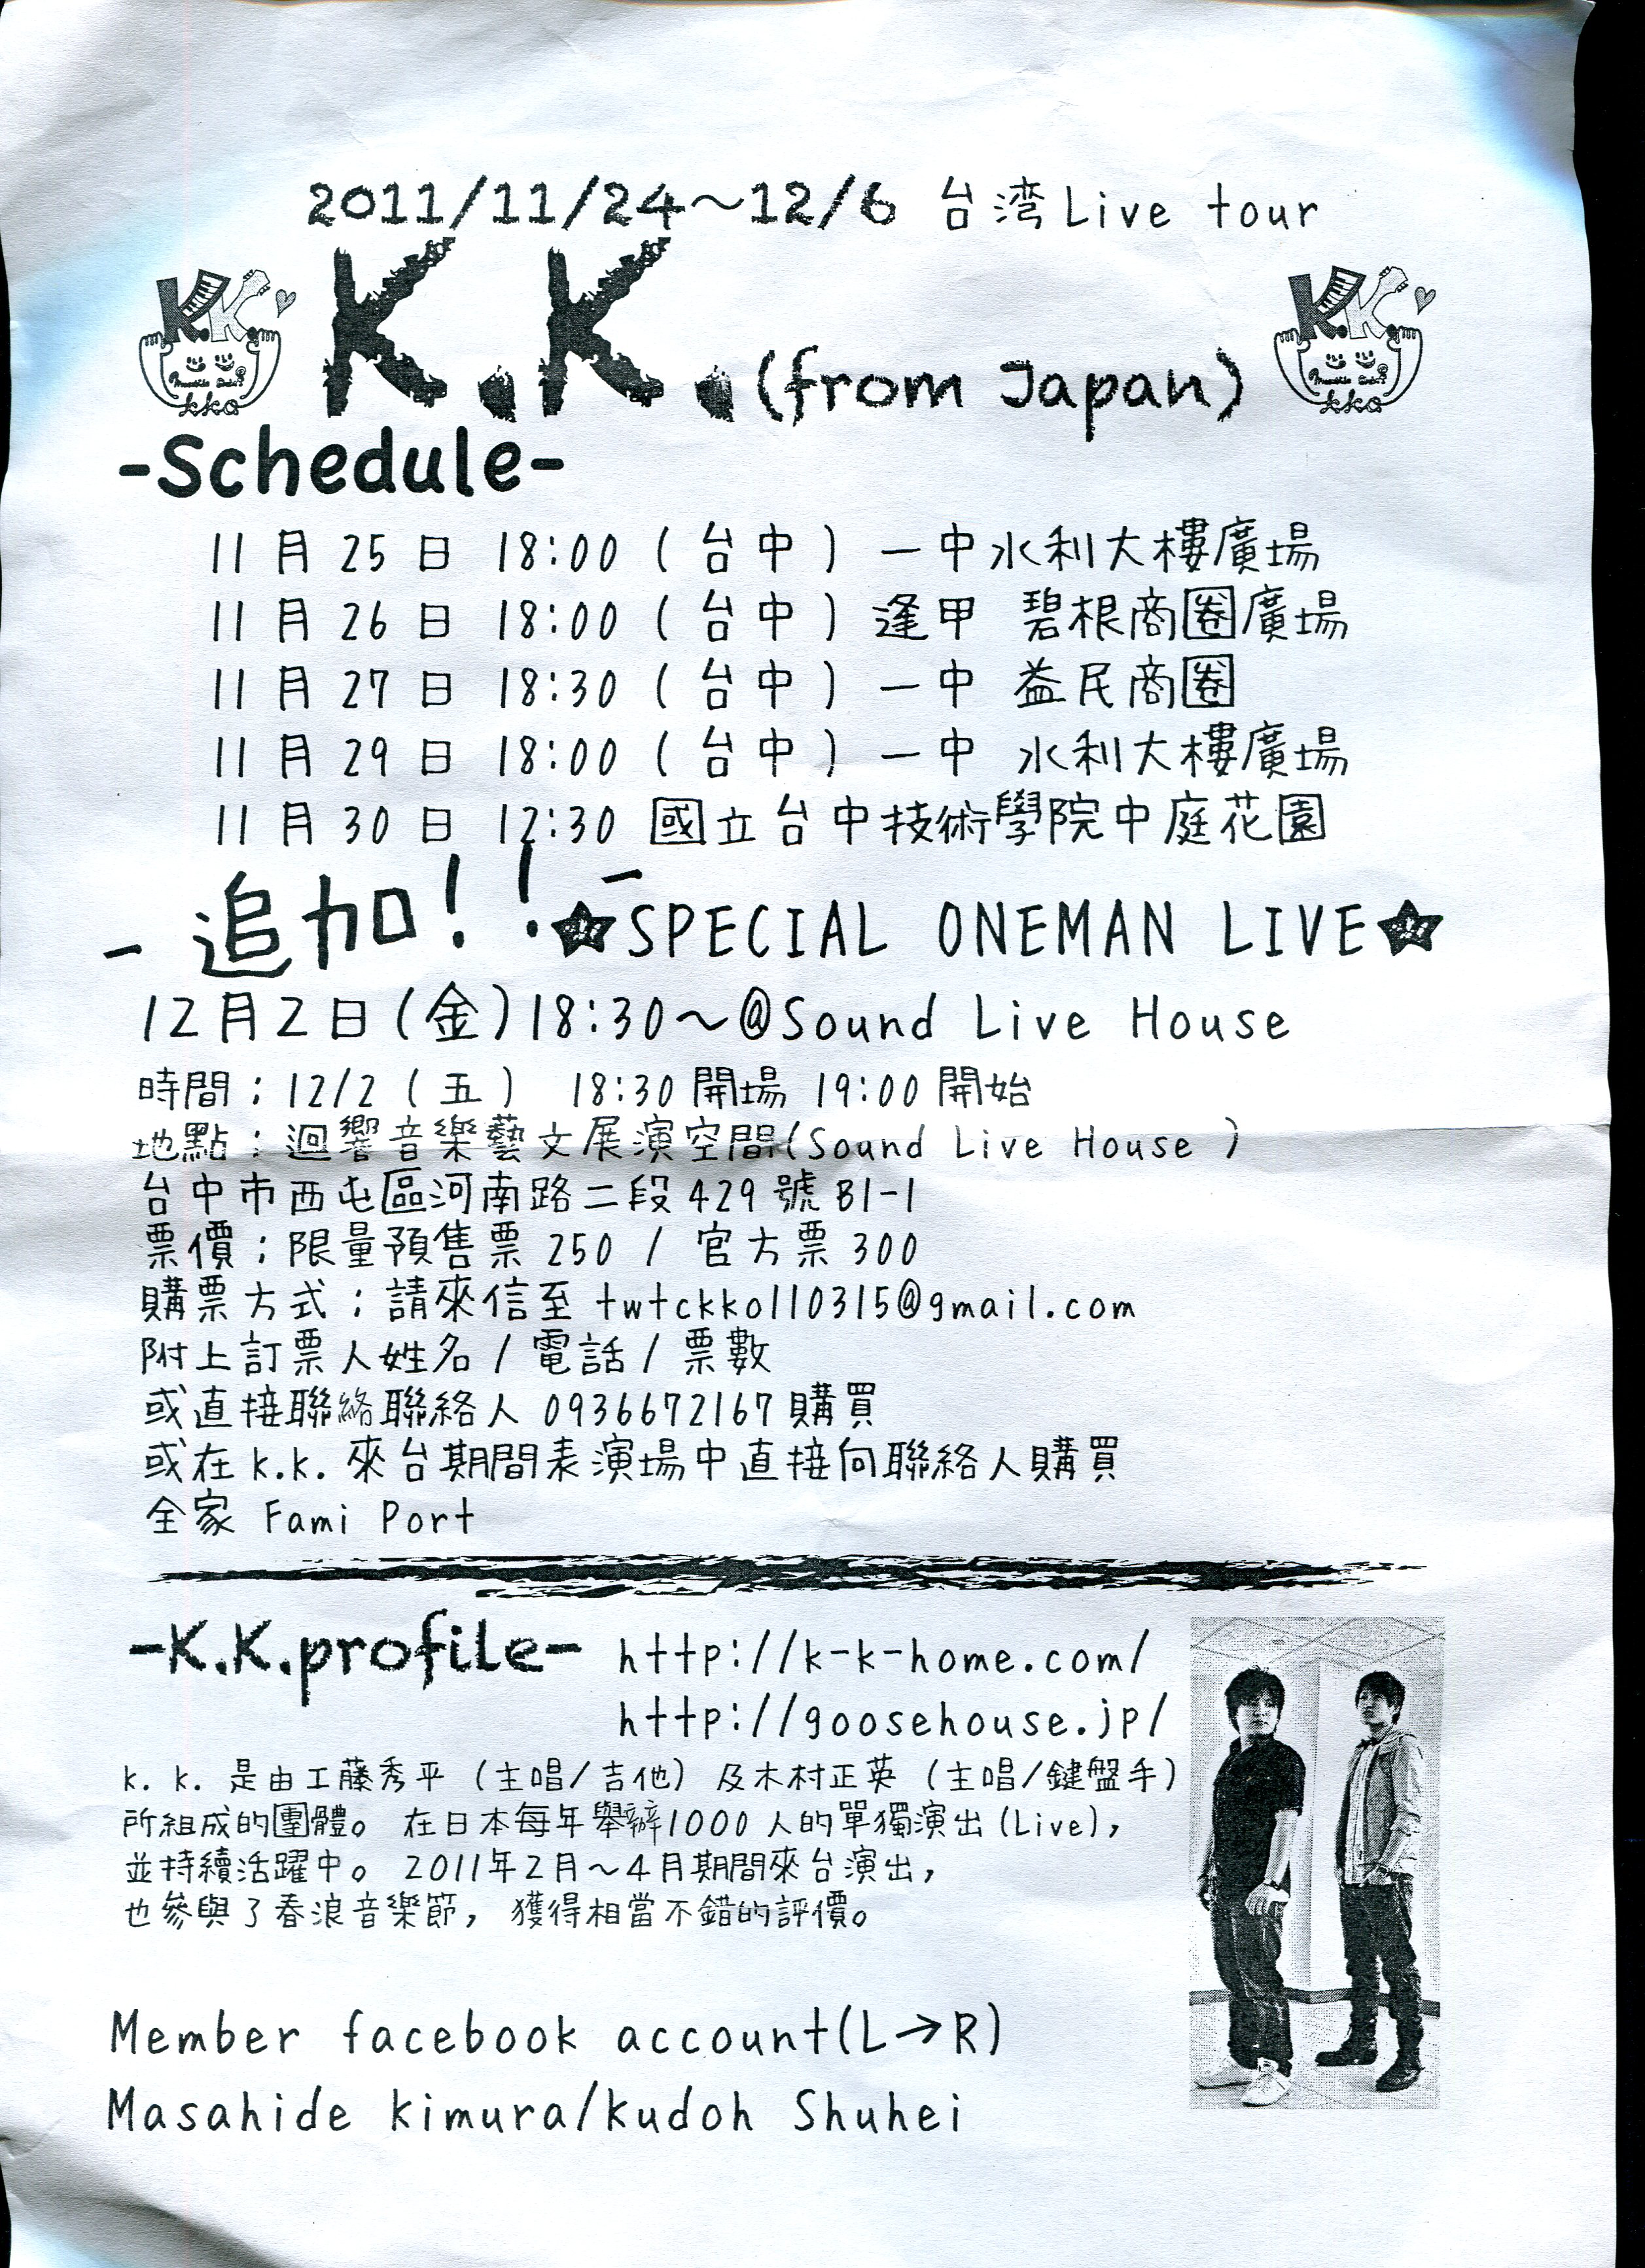 2011/11/24～12/6 台湾Live tour
K.K.
kko
K.K.(from Japan)
K.K.
kko
-Schedule-
11月25日 18:00(台中)一中水利大樓廣場
11月26日 18:00(台中)逢甲 碧根商圈廣場
11月27日 18:30(台中)一中 益民商圈
11月29日 18:00(台中)一中 水利大樓廣場
11月30日 12:30 國立台中技術學院中庭花園
-追加!!-☆SPECIAL ONEMAN LIVE☆
12月2日(金)18:30～@Sound Live House
時間：12/2(五) 18:30開場 19:00開始
地點：迴響音樂藝文展演空間(Sound Live House )
台中市西屯區河南路二段429號B1-1
票價：限量預售票 250 / 官方票 300
購票方式：請來信至 twtckko110315@gmail.com
附上訂票人姓名/電話/票數
或直接聯絡聯絡人 0936672167購買
或在k.k.來台期間表演場中直接向聯絡人購買
全家 Fami Port
-K.K.profile- http://k-k-home.com/
http://goosehouse.jp/
k. k. 是由工藤秀平（主唱/吉他）及木村正英（主唱/鍵盤手）
所組成的團體。在日本每年舉辦1000人的單獨演出(Live)，
並持續活躍中。2011年2月～4月期間來台演出，
也參與了春浪音樂節，獲得相當不錯的評價。
Member facebook account(L→R)
Masahide kimura/kudoh Shuhei